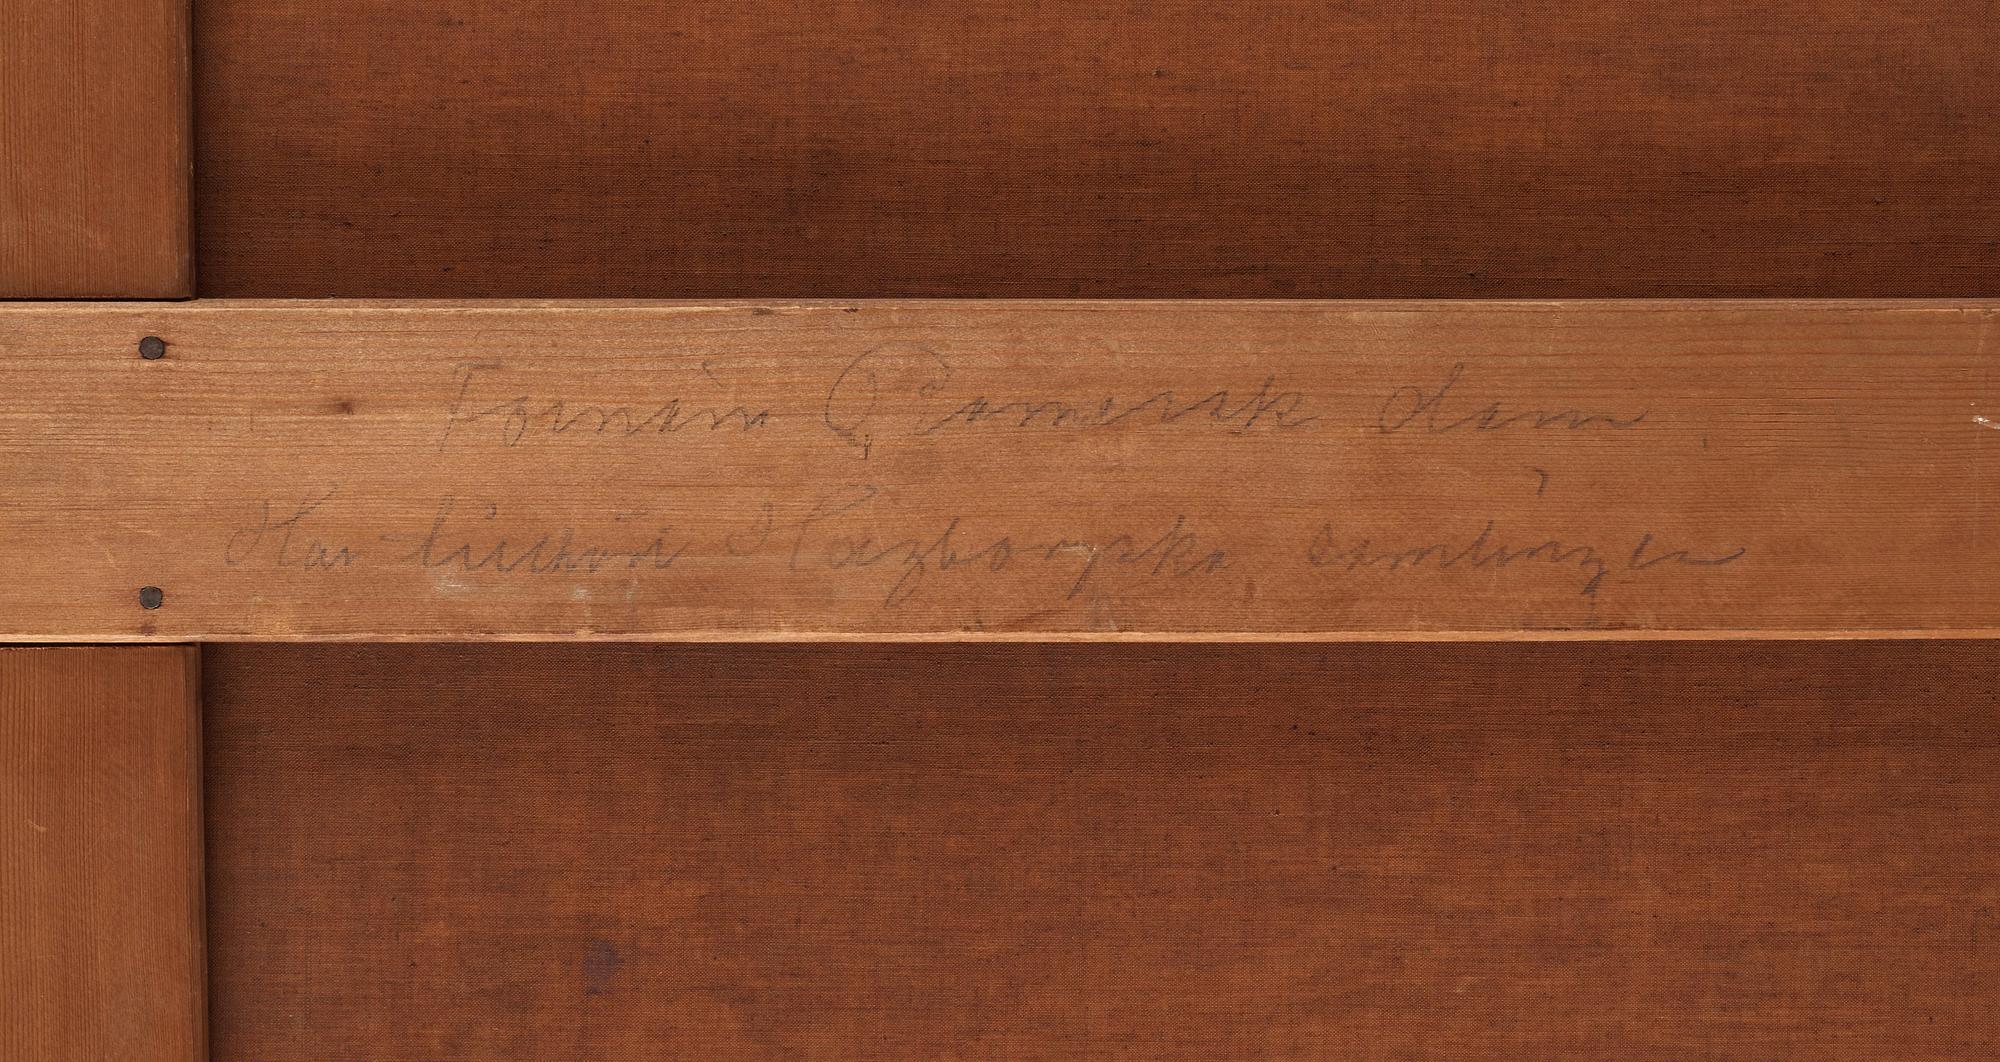 Förnäm Romersk dam
Har tillhört Hagborgska samlingen